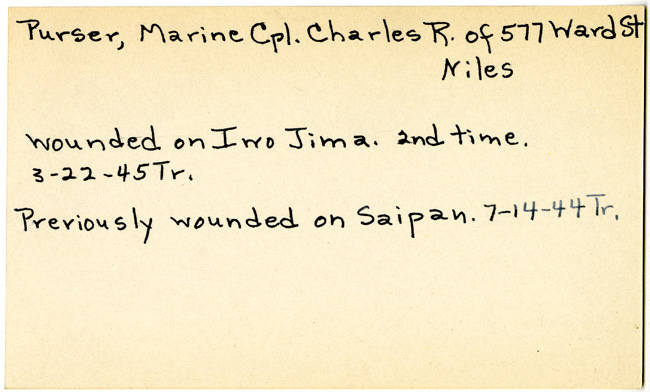 Purser, Marine Cpl. Charles R. of 577 Ward St
Niles
wounded on Iwo Jima. 2nd time.
3-22-45 Tr.
Previously wounded on Saipan. 7-14-44 Tr.